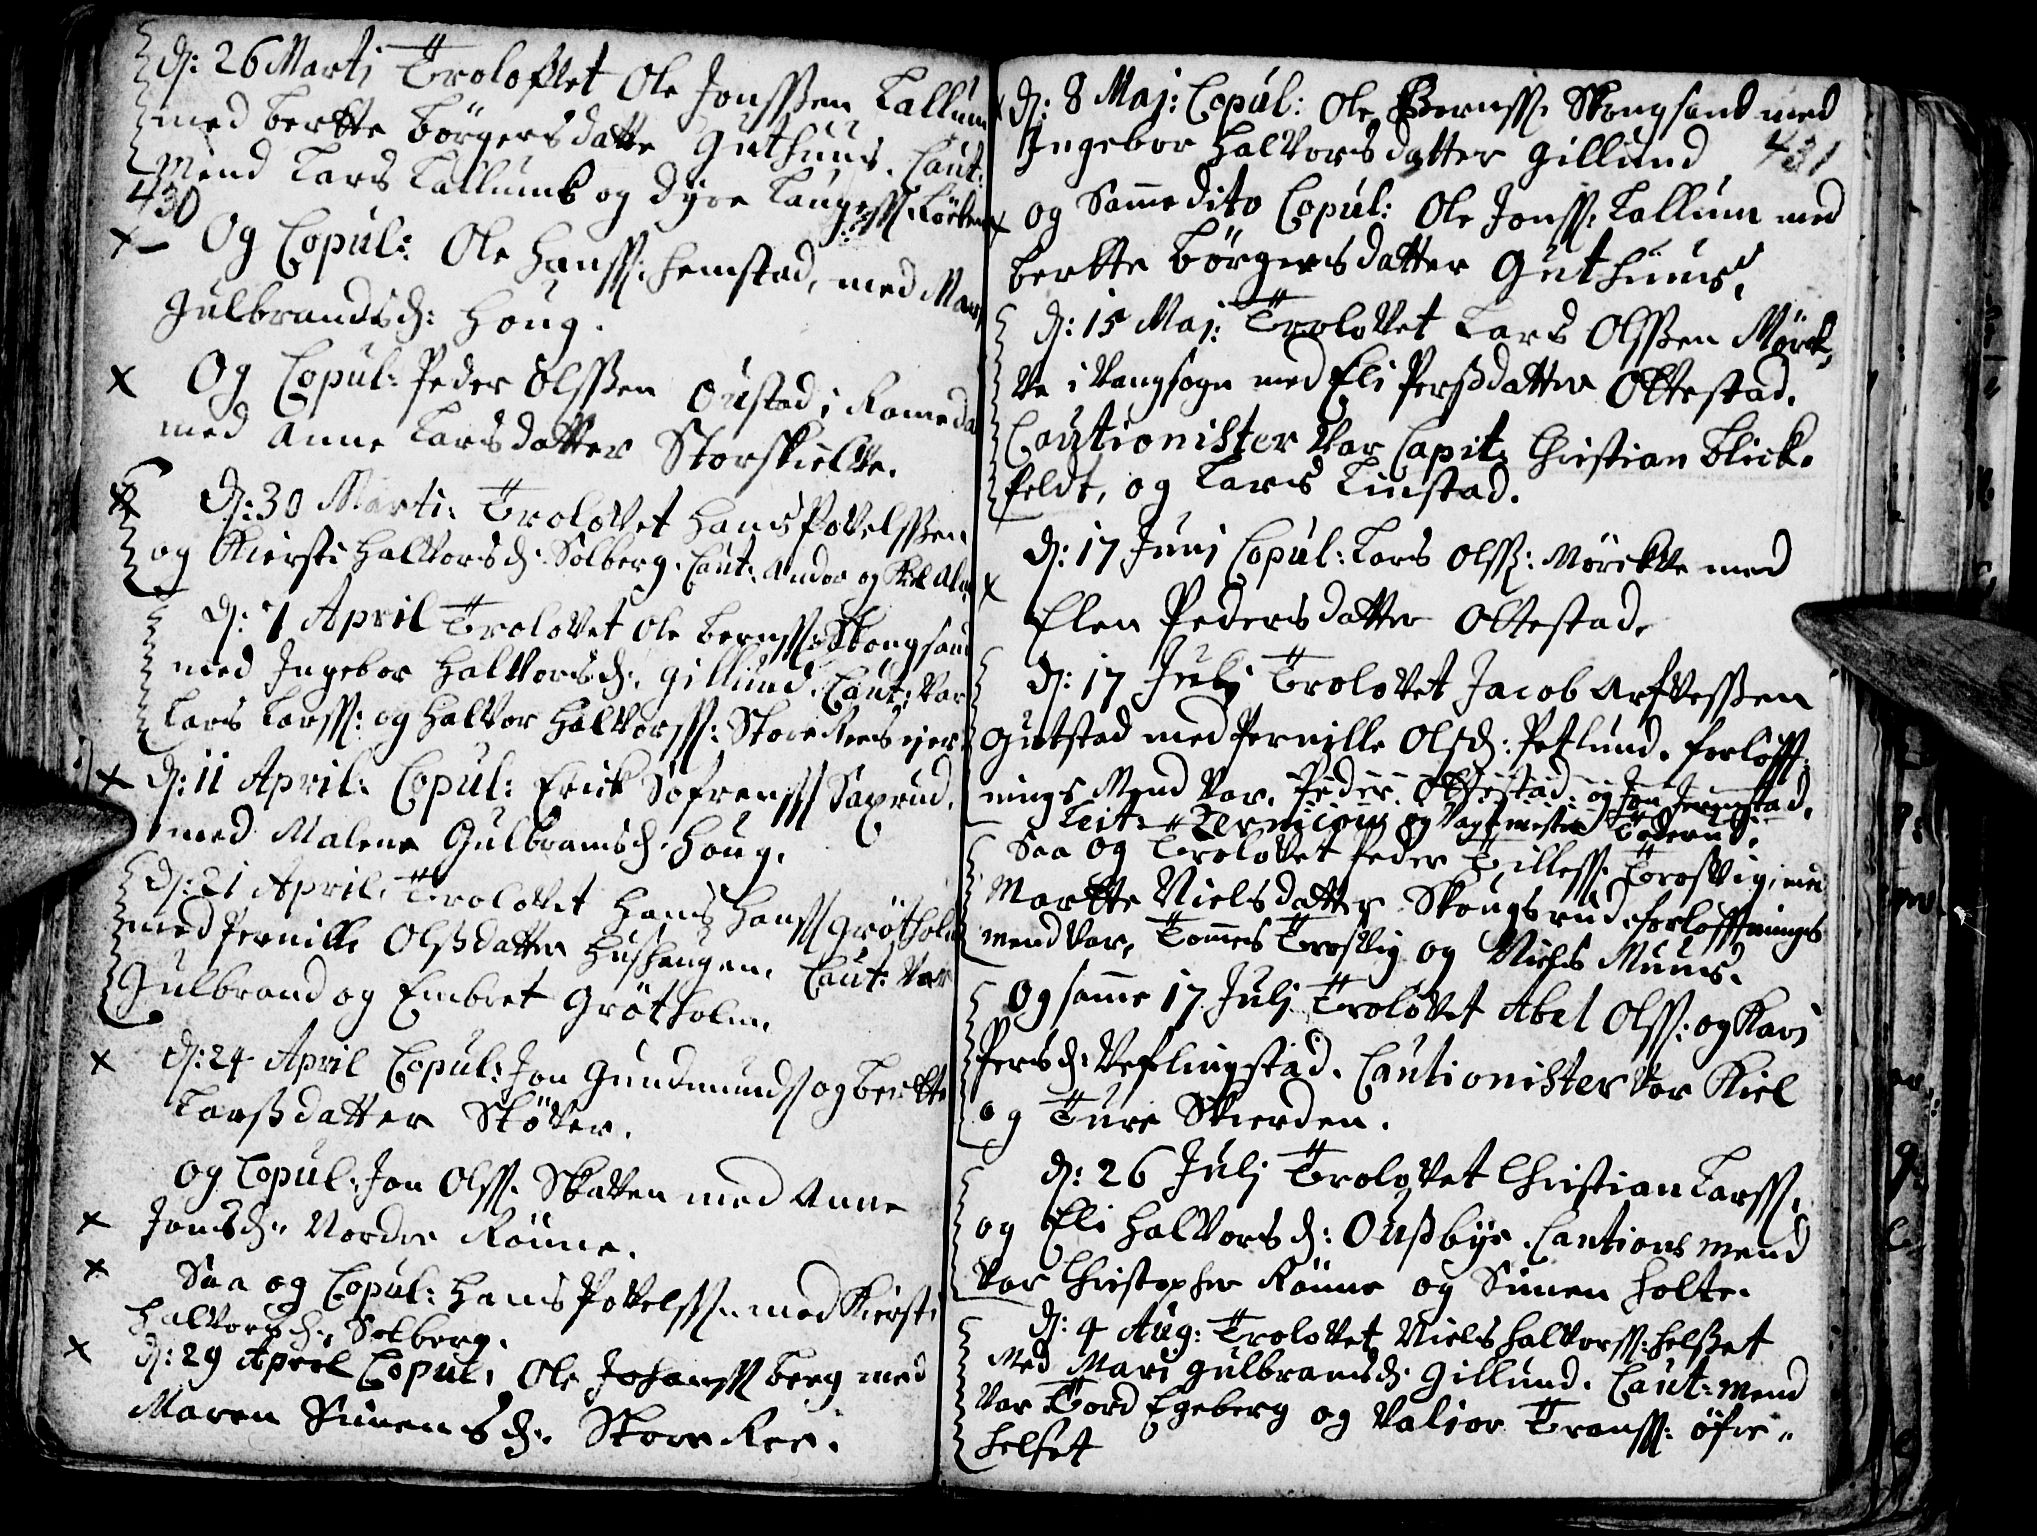 d: 26 Martj Troloffet Ole Jonsßen Lallum
med Berthe Börgersdatter Guthuus. Caut:
mend Lars Lallumb og Dyre Laugess
430
Og Copul: Ole Hanss: Hemstad, med Mari
Gulbrandsd: Houg.
Og Copul: Peder Olsßen Oustad i Romeda
med Anne Larsdatter Storskielve.
d: 30 Marti: Trolovet Hans Povelsßen
og Kiersti Halvorsd: Solberg. Caut: Amdor og
d: 7 April Trolovet Ole Bernss: Skougsand
med Ingebor Halvorsd: Gillund. Caut: var
Lars Larss: og Halvor Halvorss: Store
d: 11 April: Copul: Erick Sofrenss Saxrud,
med Malene Gulbransd: Houg.
d: 21 April: Trolovet Hans Hanss Grötholm
med Pernille Olsßdatter Hushengen. Caut: var
Gulbrand og Embret Grötholm.
d: 24 April Copul: Jon Gundmunds og Berthe
Larsßdatter Stöver.
og Copul: Jon Olss: Skatten med Anne
Jonsd: Nordre Rönne.
Saa og Copul: Hans Povelss: med Kiersti
Halvorsd: Solberg.
d: 29 April Copul: Ole Johanss Berg med
Maren Simensd: Store Ree.
d: 8 Maj: Copul: Ole Bernss: Skougsand med
Ingebor Halvorsdatter Gillund 431
og Samme dito Copul: Ole Jonss: Lallum med
Berthe Börgersdatter Guthuus.
d: 15 Maj: Trolovet Lars Olsßen Mörck,
ve i Vangsogn med Eli Persßdatter Ottestad.
Cautionister var Capit: Christian Blick-
feldt, og Lars Linstad.
d: 17 Junj Copul: Lars Olss: Mörckve med
Elen Pedersdatter Ottestad.
d: 17 Julj Trolovet Jacob Arfvesßen
Gutstad med Pernille Olsd: Petlund. forloff-
nings Mend var, Peder Ottestad: og Jon Jernstad.
Leit: og Vagtmester
Saa og Trolovet Peder Tilless: Trosvig, med
Marthe Nielsdatter Skougsrud. forloffnings
mend var, Tommes Trosvig og Niels Muus.
Og samme 17 Julj Trolovet Abel Olss: og Kari
Persd: Veflingstad. Cautionister var Kiel
og Ture Skierden.
d: 26 Julj Trolovet Christian Larss,
og Eli Halvorsd: Oußbye. Cautions mend
var Christopher Rönne og Simen Holte.
d: 4 Aug: Trolovet Niels Halvorss: Helßet
Med Mari Gulbransd: Gillund. Caut: mend
var Tord Egeberg og Valior Transs: öfre-
Helset